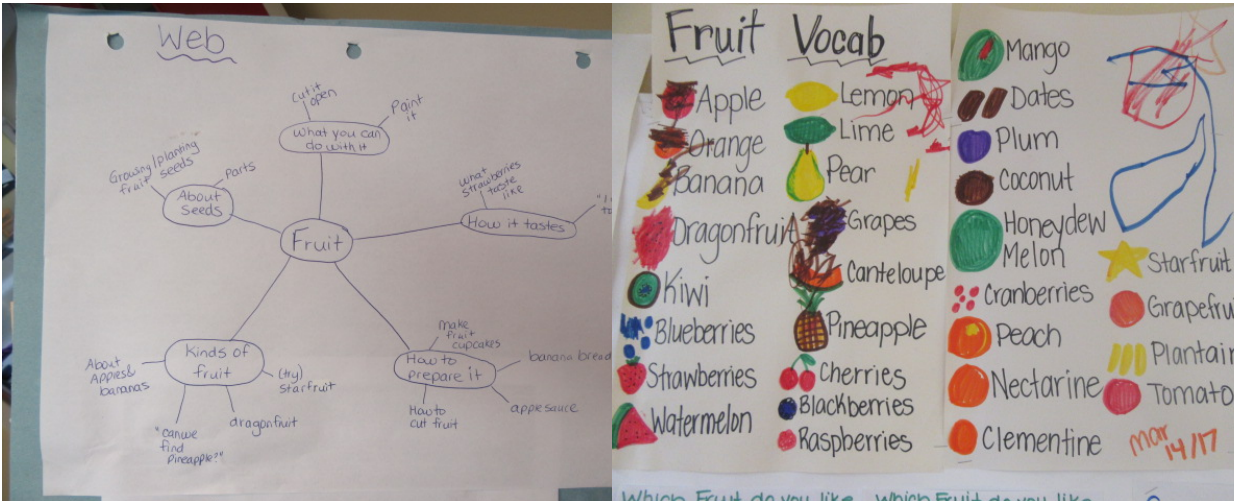 Web
cut it
open
Paint
it
What you can
do with it
Growing/planting
fruit seeds
Parts
About
Seeds
what
strawberries
taste
like
How it tastes
Fruit
Kinds of
fruit
About
Apples &
bananas
"can we
find
Pineapple?"
dragonfruit
(try)
starfruit
How to
prepare it
make
fruit
cupcakes
banana bread
applesauce
How to
cut fruit
Fruit Vocab
Apple
Orange
Banana
Dragonfruit
Kiwi
Blueberries
Strawberries
Watermelon
Lemon
Lime
Pear
Grapes
Canteloupe
Pineapple
Cherries
Blackberries
Raspberries
Mango
Dates
Plum
Coconut
Honeydew
Melon
Cranberries
Peach
Nectarine
Clementine
Starfruit
Grapefru
Plantain
Tomato
Mar
14/17
Which Fruit do you like
Which Fruit do you like